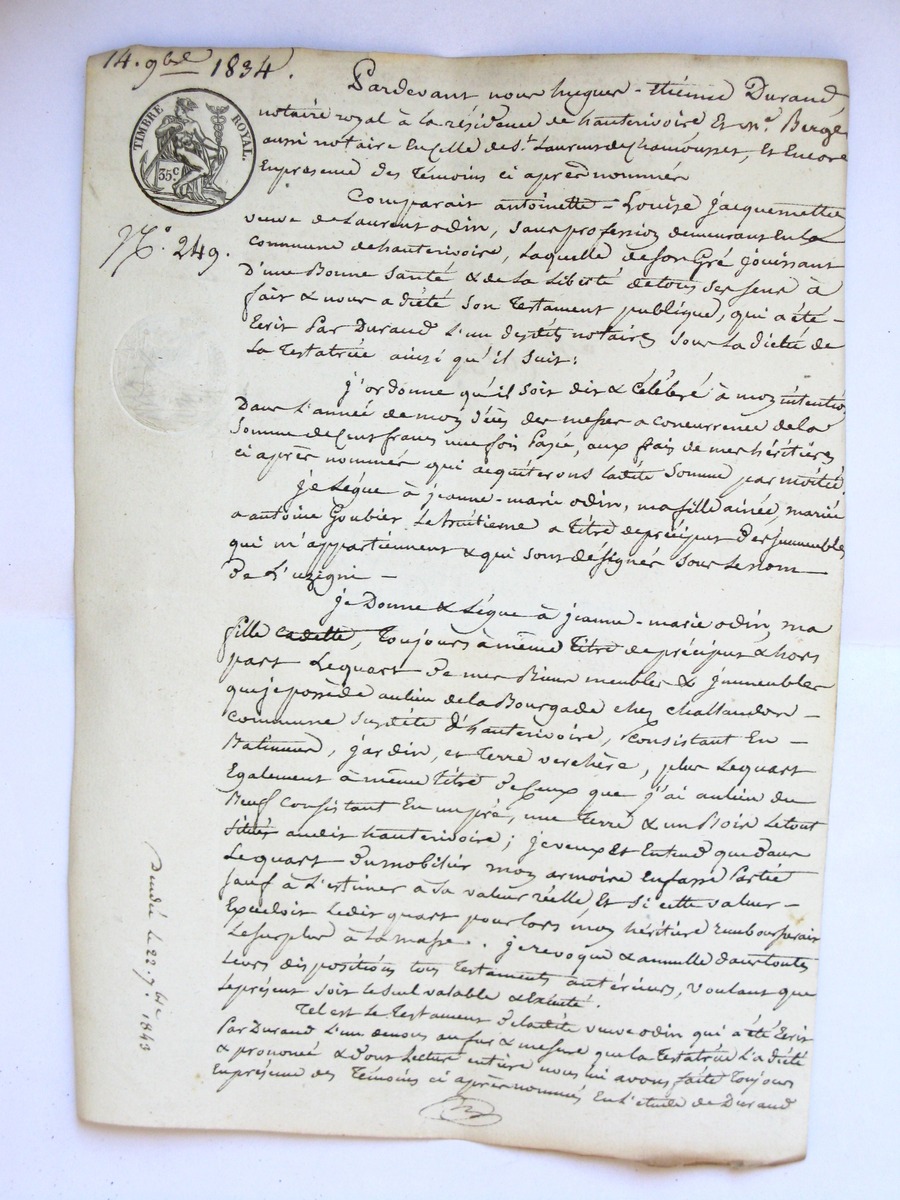 14. 9bre 1834.
TIMBRE ROYAL.
35c
No. 249.
Pardevant nous hugues-Etienne Durand
notaire royal à la résidence de hauterivoire Et Me. Bergé
aussi notaire En Celle de St. Laurent de Chamousset, Et Encore
Enprésence des Témoins ci après nommés
Comparait antoinette-Louise jacquemette
veuve de Laurent odin, sans profession demeurant En la
Commune de hauterivoire, Laquelle de son Gré jouissant
D'une Bonne Santé & de La Liberté de tous ses sens à
fait & nous a dicté son Testament publique, qui a été-
Ecrit Par Durand L'un desdits notaires Sous La dictée de
La Testatrice ainsi qu'il suit:
j'ordonne qu'il soit dit & Célébré à mon intention
Dans L'année de mon décès des messes a concurrence de la
Somme de Cent francs une fois Payée, aux frais de mes héritiers
ci après nommés qui acquiterons ladite Somme par moitié.
je Lègue à jeanne-marie odin, ma fille ainée, mariée
a antoine Goubier, Le huitieme a titre de préciput Des jmmeubles
qui m'appartiennent & qui sont désignés sous le nom
De L'uzigni -
je Donne & Lègue à jeanne-marie odin, ma
fille cadette, Toujours à même Titre de préciput & hors
part Le quart De mes Biens meubles & jmmeubles
que je possède au lieu de la Bourgade chez challandon-
commune susdite d'hauterivoire, Consistant En-
Batiment, jardin, et Terre verchère, plus Le quart
Egalement à même titre De Ceux que j'ai au lieu du
Beuf Consistant En un pré, une Terre & un Bois Le tout
Situés audit hauterivoire; je veux Et Entend que Dans
Le quart Du mobilier mon armoire En fasse Partie
sauf à L'estimer à sa valeur réelle Et Si cette valeur-
Excédoit Ledit quart pour lors mon héritière rembourserais
Le surplus à La masse. je revoque & annulle dans toutes
Leurs dispositions tous Testaments antérieurs, Voulant que
Le présent soit le seul valable & Exécuté.
Tel est Le Testament De ladite veuve odin qui a été Ecrit
Par Durand L'un de nous au fur & mesure que la Testatrice L'a dicté
& prononcé & dont Lecture entière nous lui avons faite Toujours
En présence des Témoins ci après nommés En L'étude de Durand
Le 22. 7bre 1843